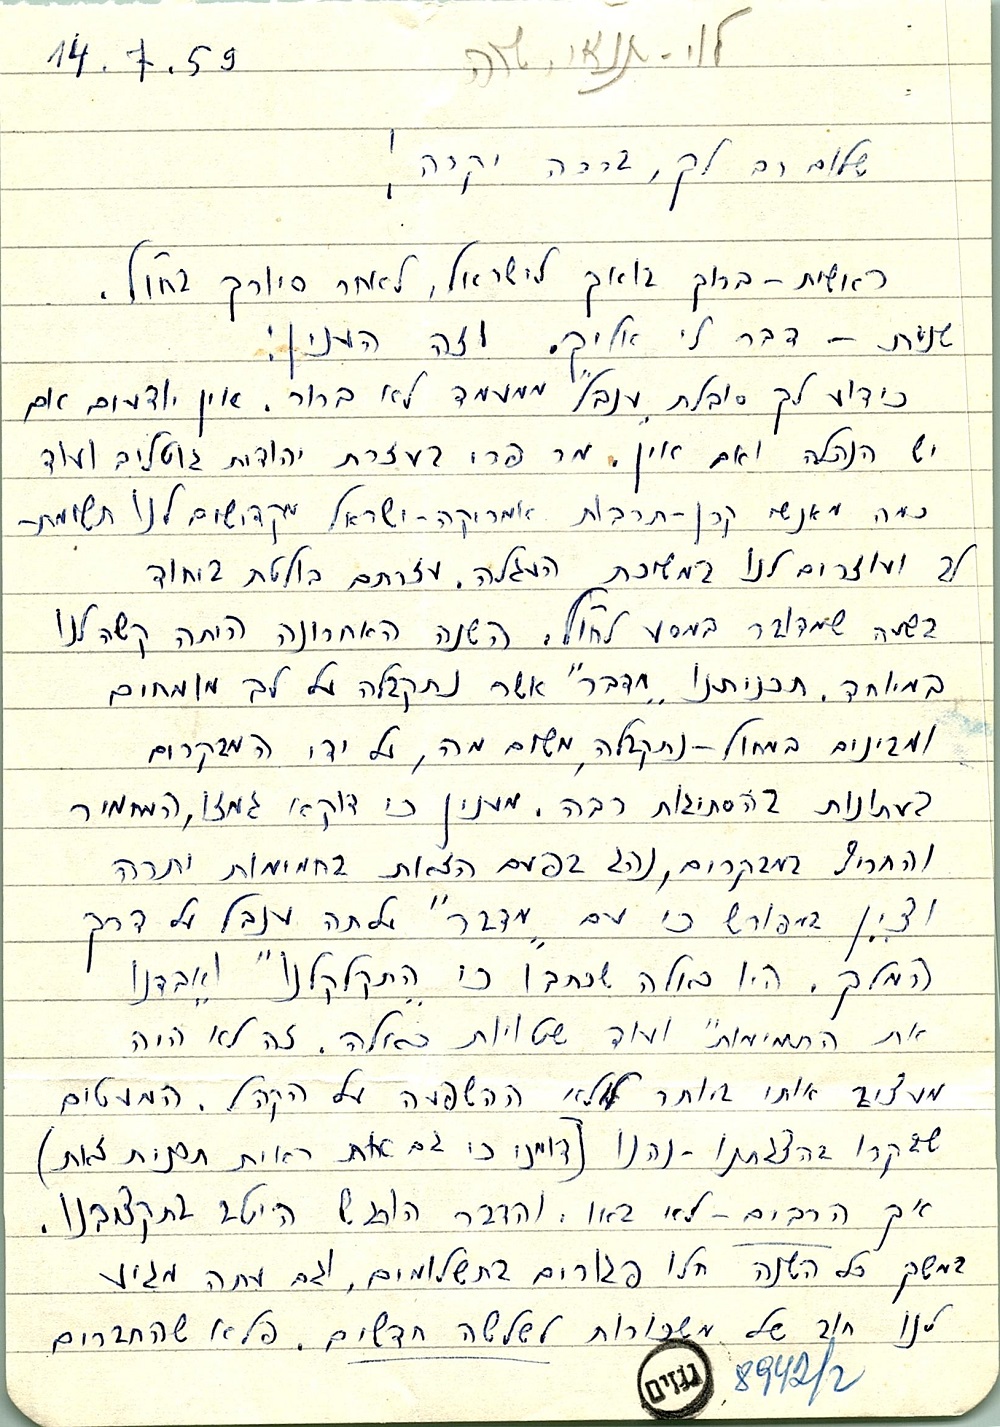 14.7.59
לוי-תנאי, שרה
שלום רב לך, ברכה יקרה!
ראשית - ברוך בואך לישראל, לאחר סיורך בחו"ל.
שנית - דבר לי אליך. וזה הענין:
כידוע לך סובלת "ענבל" ממעמד לא ברור. אין יודעים אם
יש הנהלה ואם אין. מר פרי בעזרת יהודית גוטליב ועוד
כמה מאנשי קרן-תרבות אמריקה-ישראל מקדישים לנו תשומת-
לב ועוזרים לנו במשיכת העגלה. עזרתם בולטת ביחוד
בשעה שמדובר במסע לחו"ל. השנה האחרונה היתה קשה לנו
במיוחד. תכניתנו "מדבר" אשר נתקבלה על לב מומחים
ומבינים במחול - נתקבלה, משום מה, על ידי המבקרים
בעתונות בהסתיגות רבה. מענין כי דוקא גמזו, המחמיר
והחריף במבקרים, נהג בפעם הזאת בחמימות יתרה
וציין במפורש כי עם "מדבר" עלתה ענבל על דרך
המלך. היו כאלה שכתבו כי "התקלקלנו" ו"אבדנו
את התמימות" ועוד שטויות כאלה. זה לא היה
מעציב אותי ביותר לולא ההשפעה על הקהל. המעטים
שבקרו בהצגתנו - נהנו (דומני כי גם את ראית תכנית זאת)
אך הרבים - לא באו. והדבר הורגש היטב בתקציבנו.
במשך כל השנה חלו פגורים בתשלומים, וגם עתה מגיע
לנו חוב של משכורות לשלשה חדשים. פלא שהחברים
גנזים
8942/2